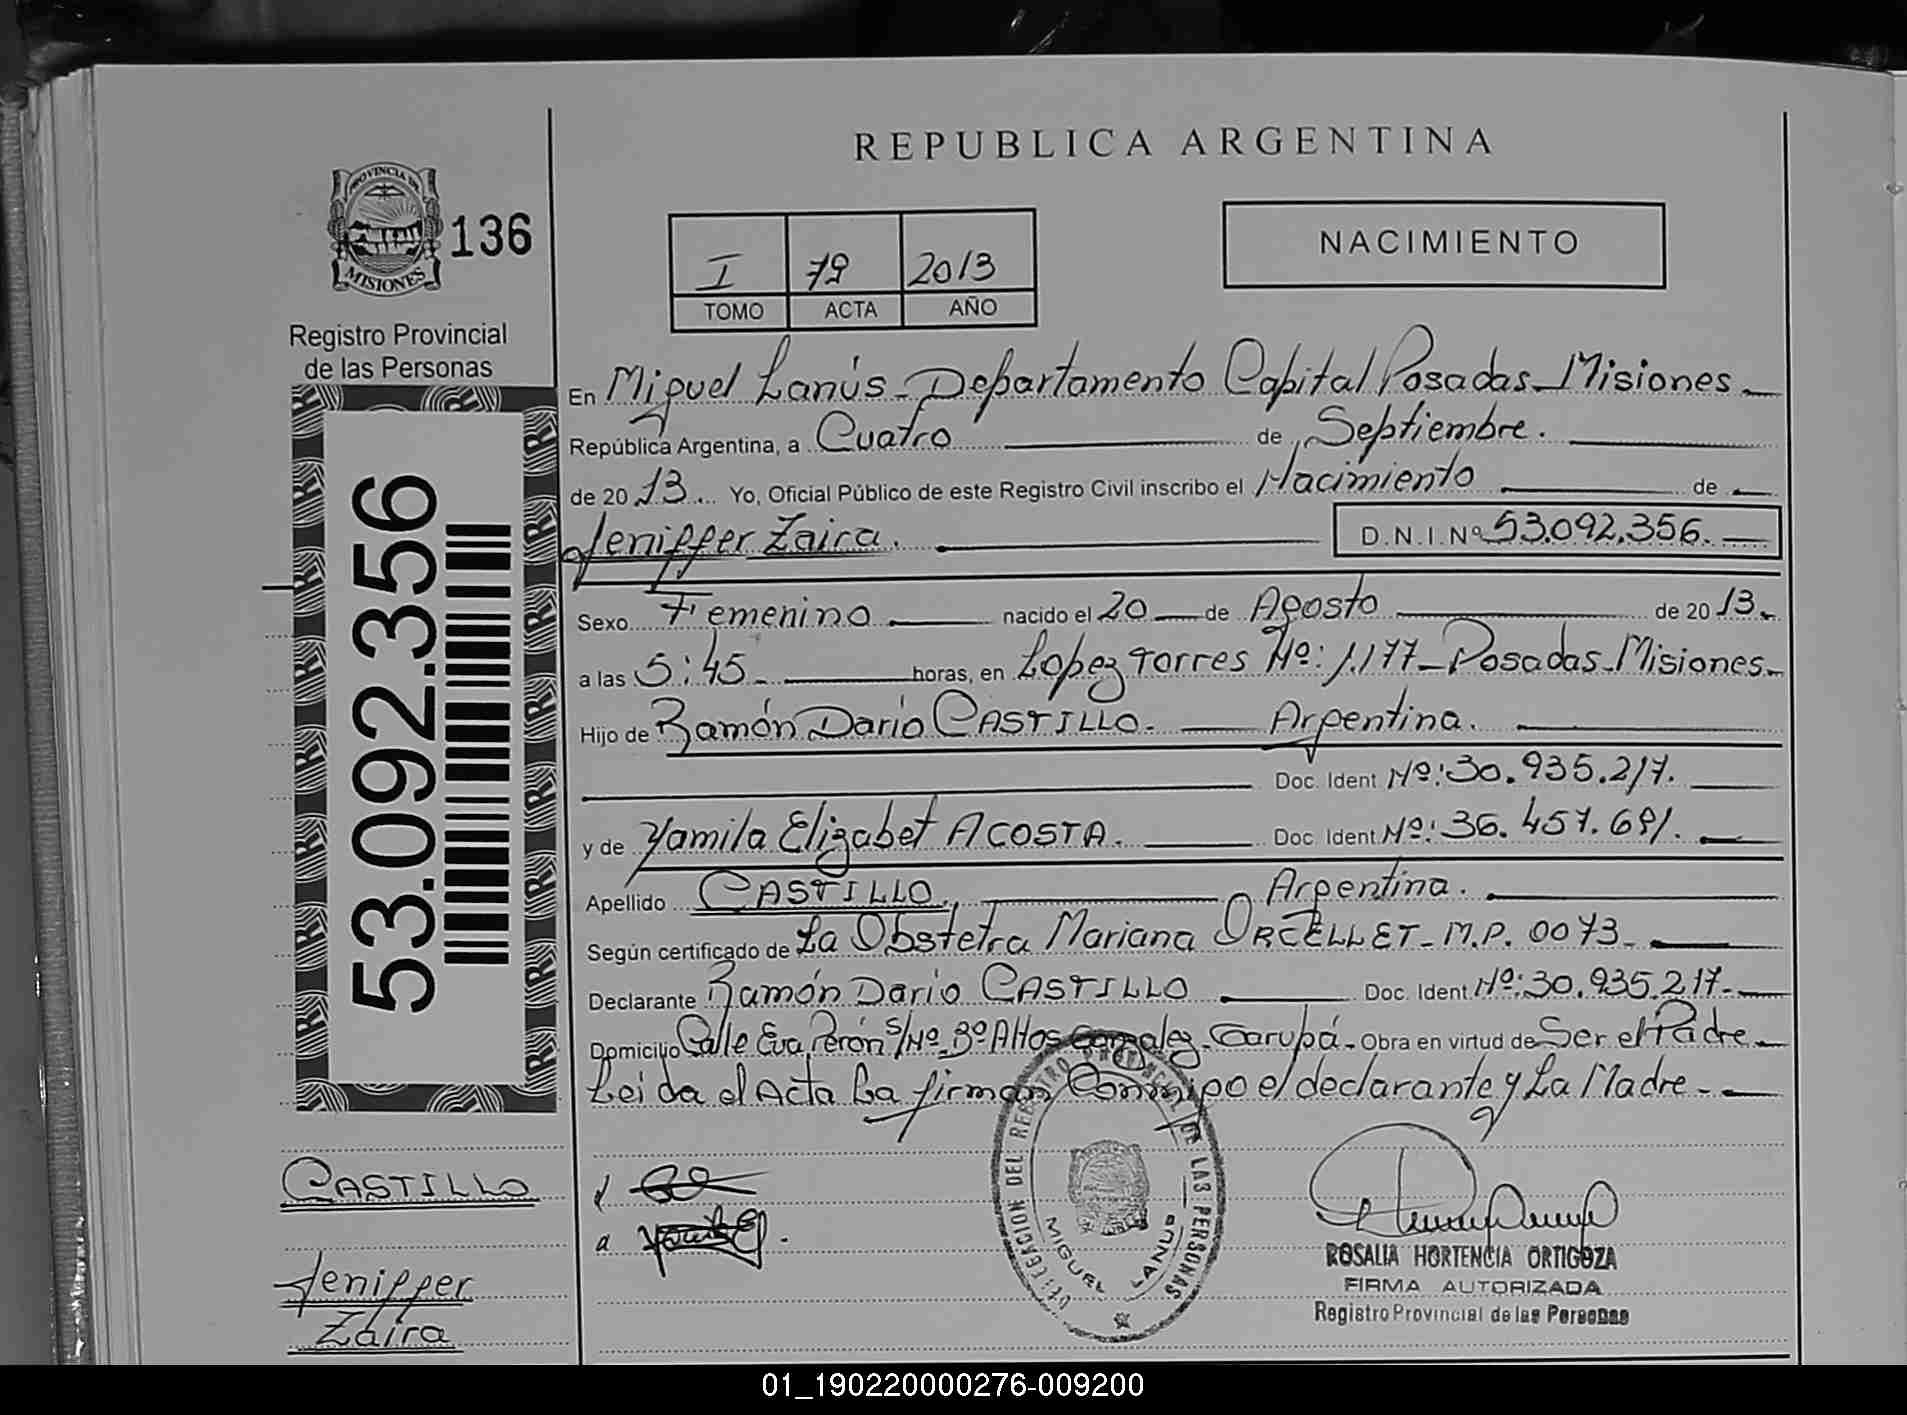 REPUBLICA ARGENTINA
PROVINCIA DE
MISIONES
136
Registro Provincial
de las Personas
53.092.356
I 79 2013
TOMO ACTA AÑO
NACIMIENTO
En Miguel Lanús - Departamento Capital Posadas - Misiones
República Argentina, a Cuatro de Septiembre.
de 2013 Yo, Oficial Público de este Registro Civil inscribo el Nacimiento de
Jenipper Zaira. D.N.I.Nº 53.092.356.
Sexo Femenino nacido el 20 de Agosto de 2013.
a las 5:45 horas, en Lopez Torres Nº: 1.177 - Posadas - Misiones
Hijo de Ramón Darío CASTILLO. Argentina.
Doc. Ident. Nº: 30.935.217.
y de Yamila Elizabet ACOSTA. Doc. Ident. Nº: 36.457.691.
Apellido CASTILLO. Argentina.
Según certificado de La Obstetra Mariana ORCELLET - M.P. 0073
Declarante Ramón Darío CASTILLO Doc. Ident. Nº: 30.935.217.
Domicilio Calle Eva Perón S/Nº Bº Altos Gonzalez - Garupá - Obra en virtud de Ser el Padre
Leida el Acta La firman Conmigo el declarante y La Madre
CASTILLO
Jenipper
Zaira
DELEGACION DEL REGISTRO PROVINCIAL DE LAS PERSONAS
MIGUEL LANUS
ROSALIA HORTENCIA ORTIGOZA
FIRMA AUTORIZADA
Registro Provincial de las Personas
01_190220000276-009200